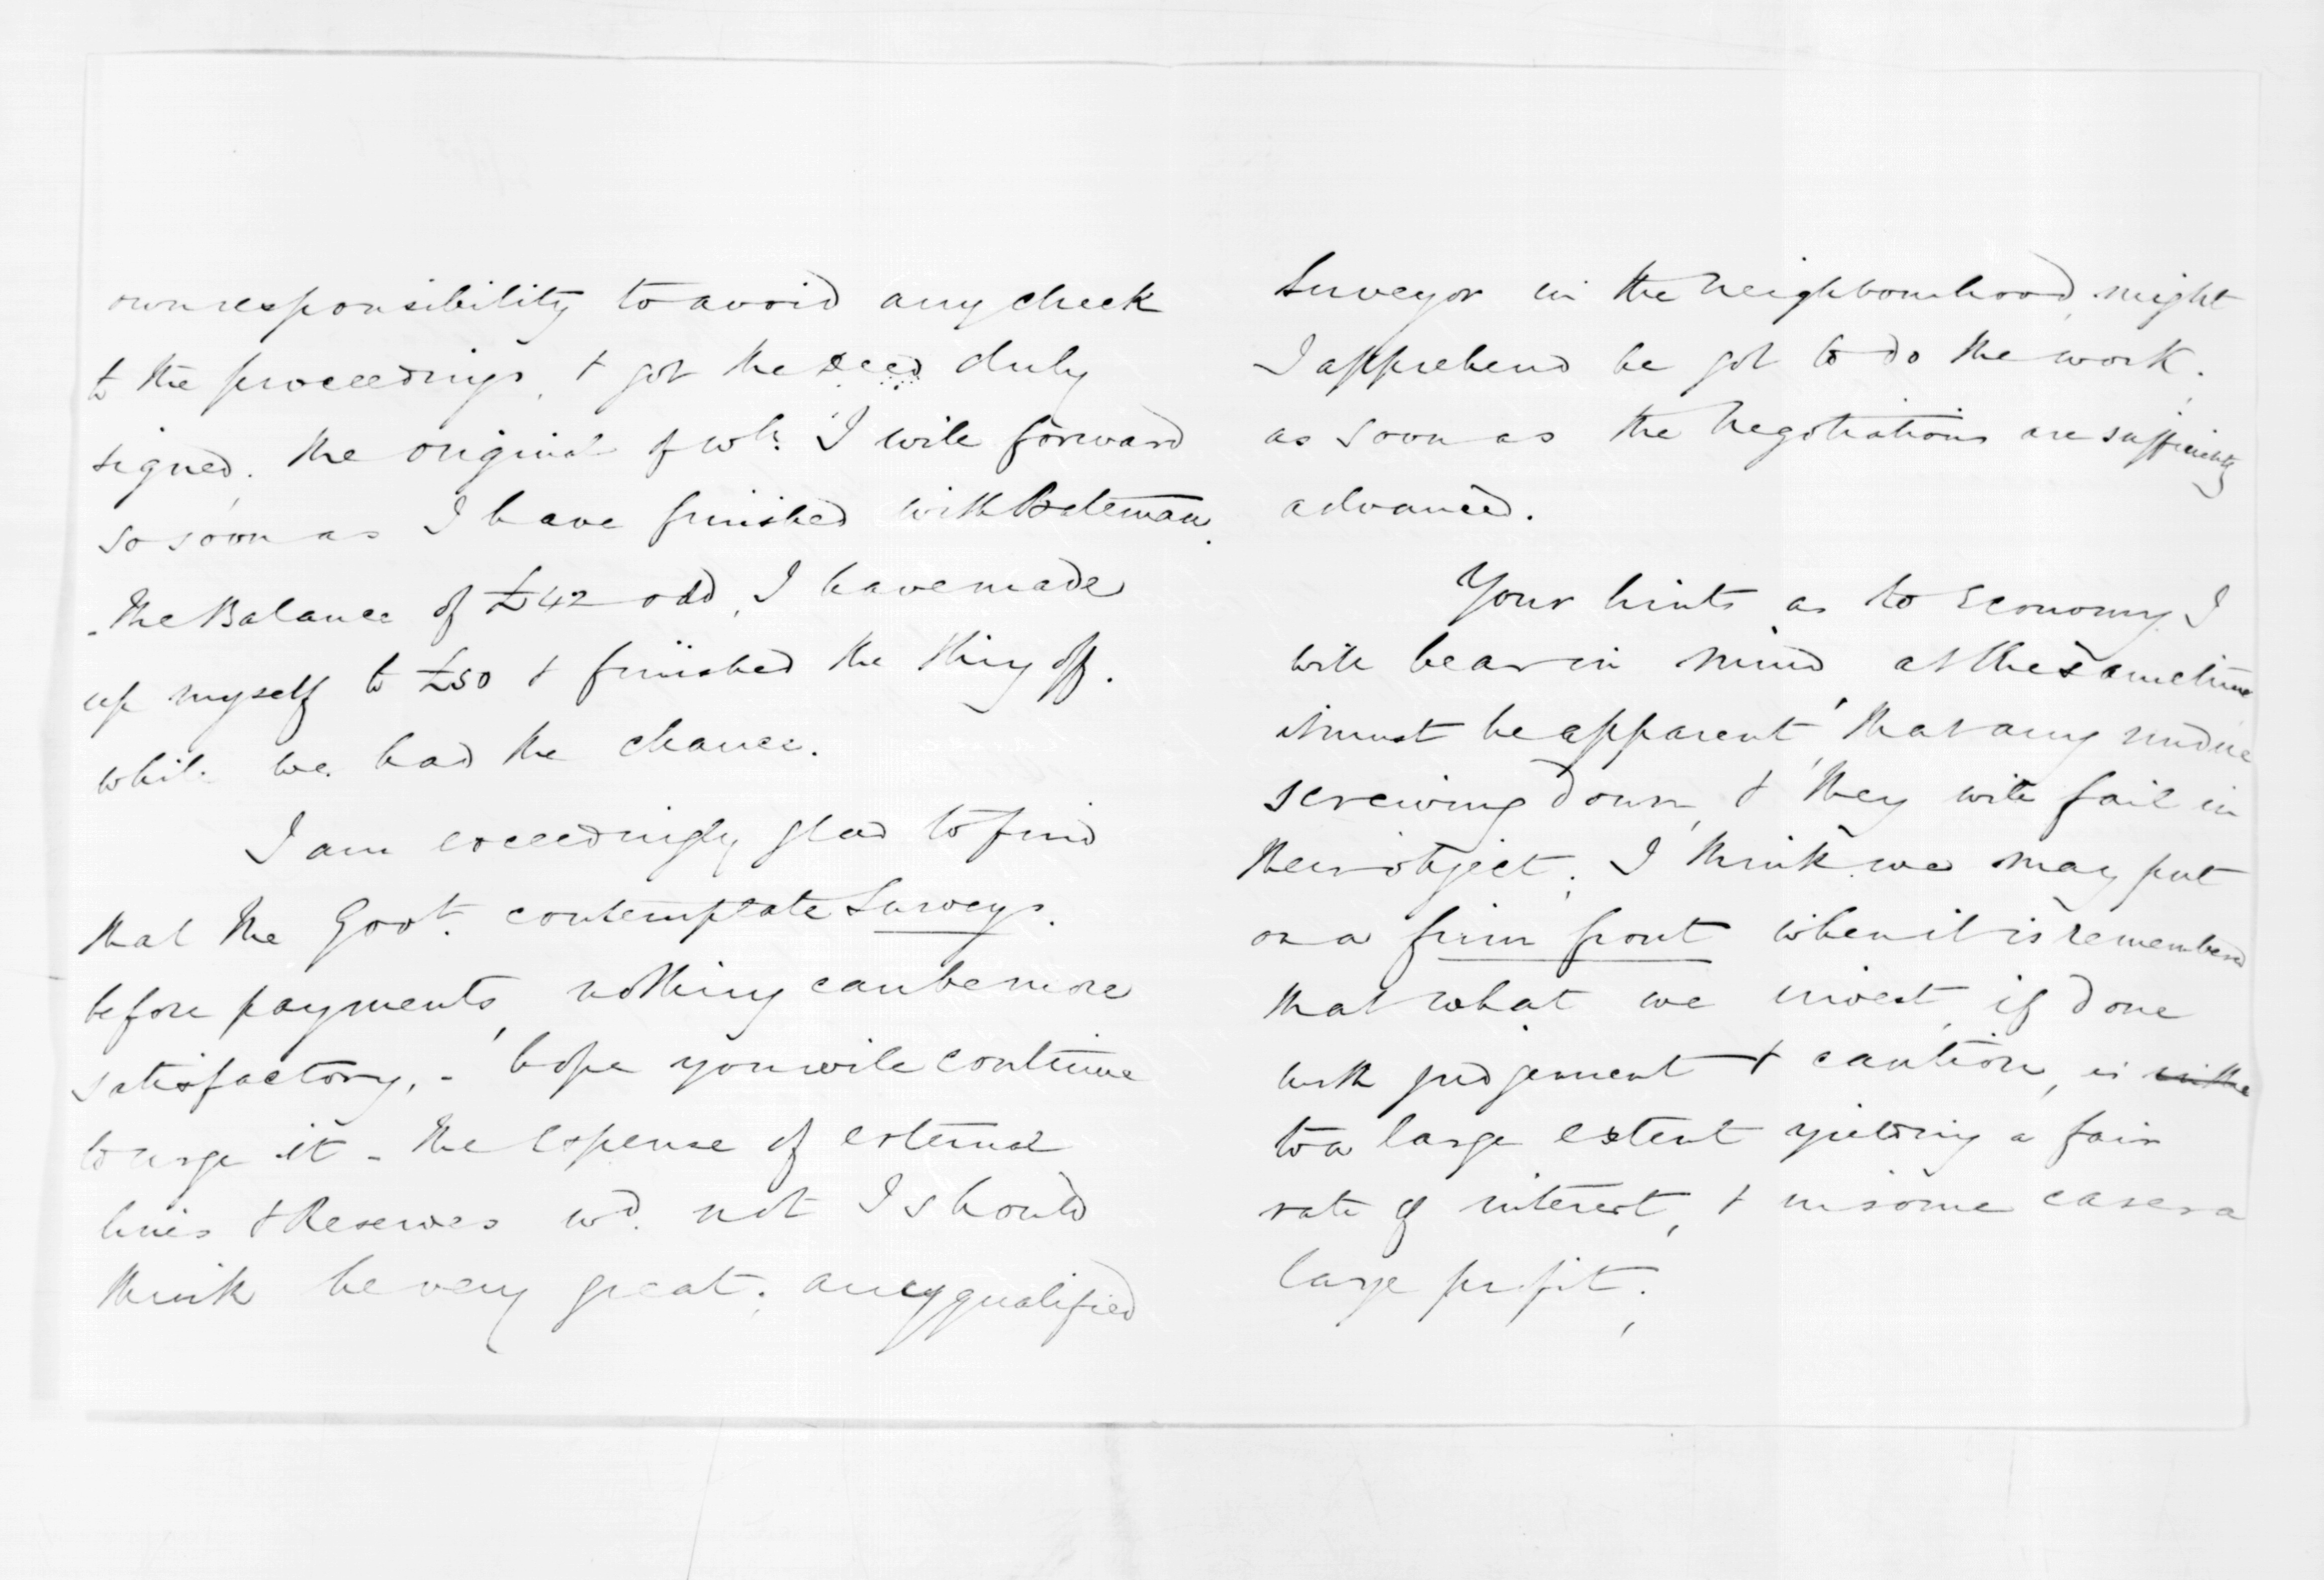 own responsibility to avoid any check
to the proceedings, & got the deed duly
signed. the original of wh: I will forward
so soon as I have finished with Bateman.
- The Balance of £42 odd, I have made
up myself to £50 & finished the thing off.
while we had the chance.
I am exceedingly glad to find
that the Govt. contemplate Surveys.
before payments, nothing can be more
satisfactory, - hope you will continue
to urge it - The expense of external
lines & Reserves wd. not I should
think be very great; any qualified
Surveyor in the neighbourhood, might
I apprehend be got to do the work.
as soon as the negotiations are sufficiently
advanced.
Your hints as to Economy I
will bear in mind, at the same time
it must be apparent, that any undue
screwing down, & they will fail in
their object; I think we may put
on a firm front when it is remembered
that what we invest, if done
with judgement & caution, is in the
to a large extent yielding a fair
rate of interest, & in some cases a
large profit;